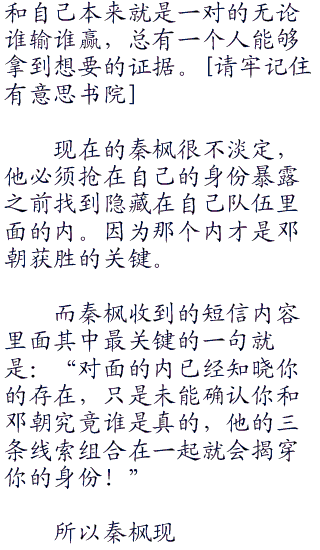 和自己本来就是一对的无论
谁输谁赢，总有一个人能够
拿到想要的证据。[请牢记住
有意思书院]
现在的秦枫很不淡定，
他必须抢在自己的身份暴露
之前找到隐藏在自己队伍里
面的内。因为那个内才是邓
朝获胜的关键。
而秦枫收到的短信内容
里面其中最关键的一句就
是：“对面的内已经知晓你
的存在，只是未能确认你和
邓朝究竟谁是真的，他的三
条线索组合在一起就会揭穿
你的身份！”
所以秦枫现